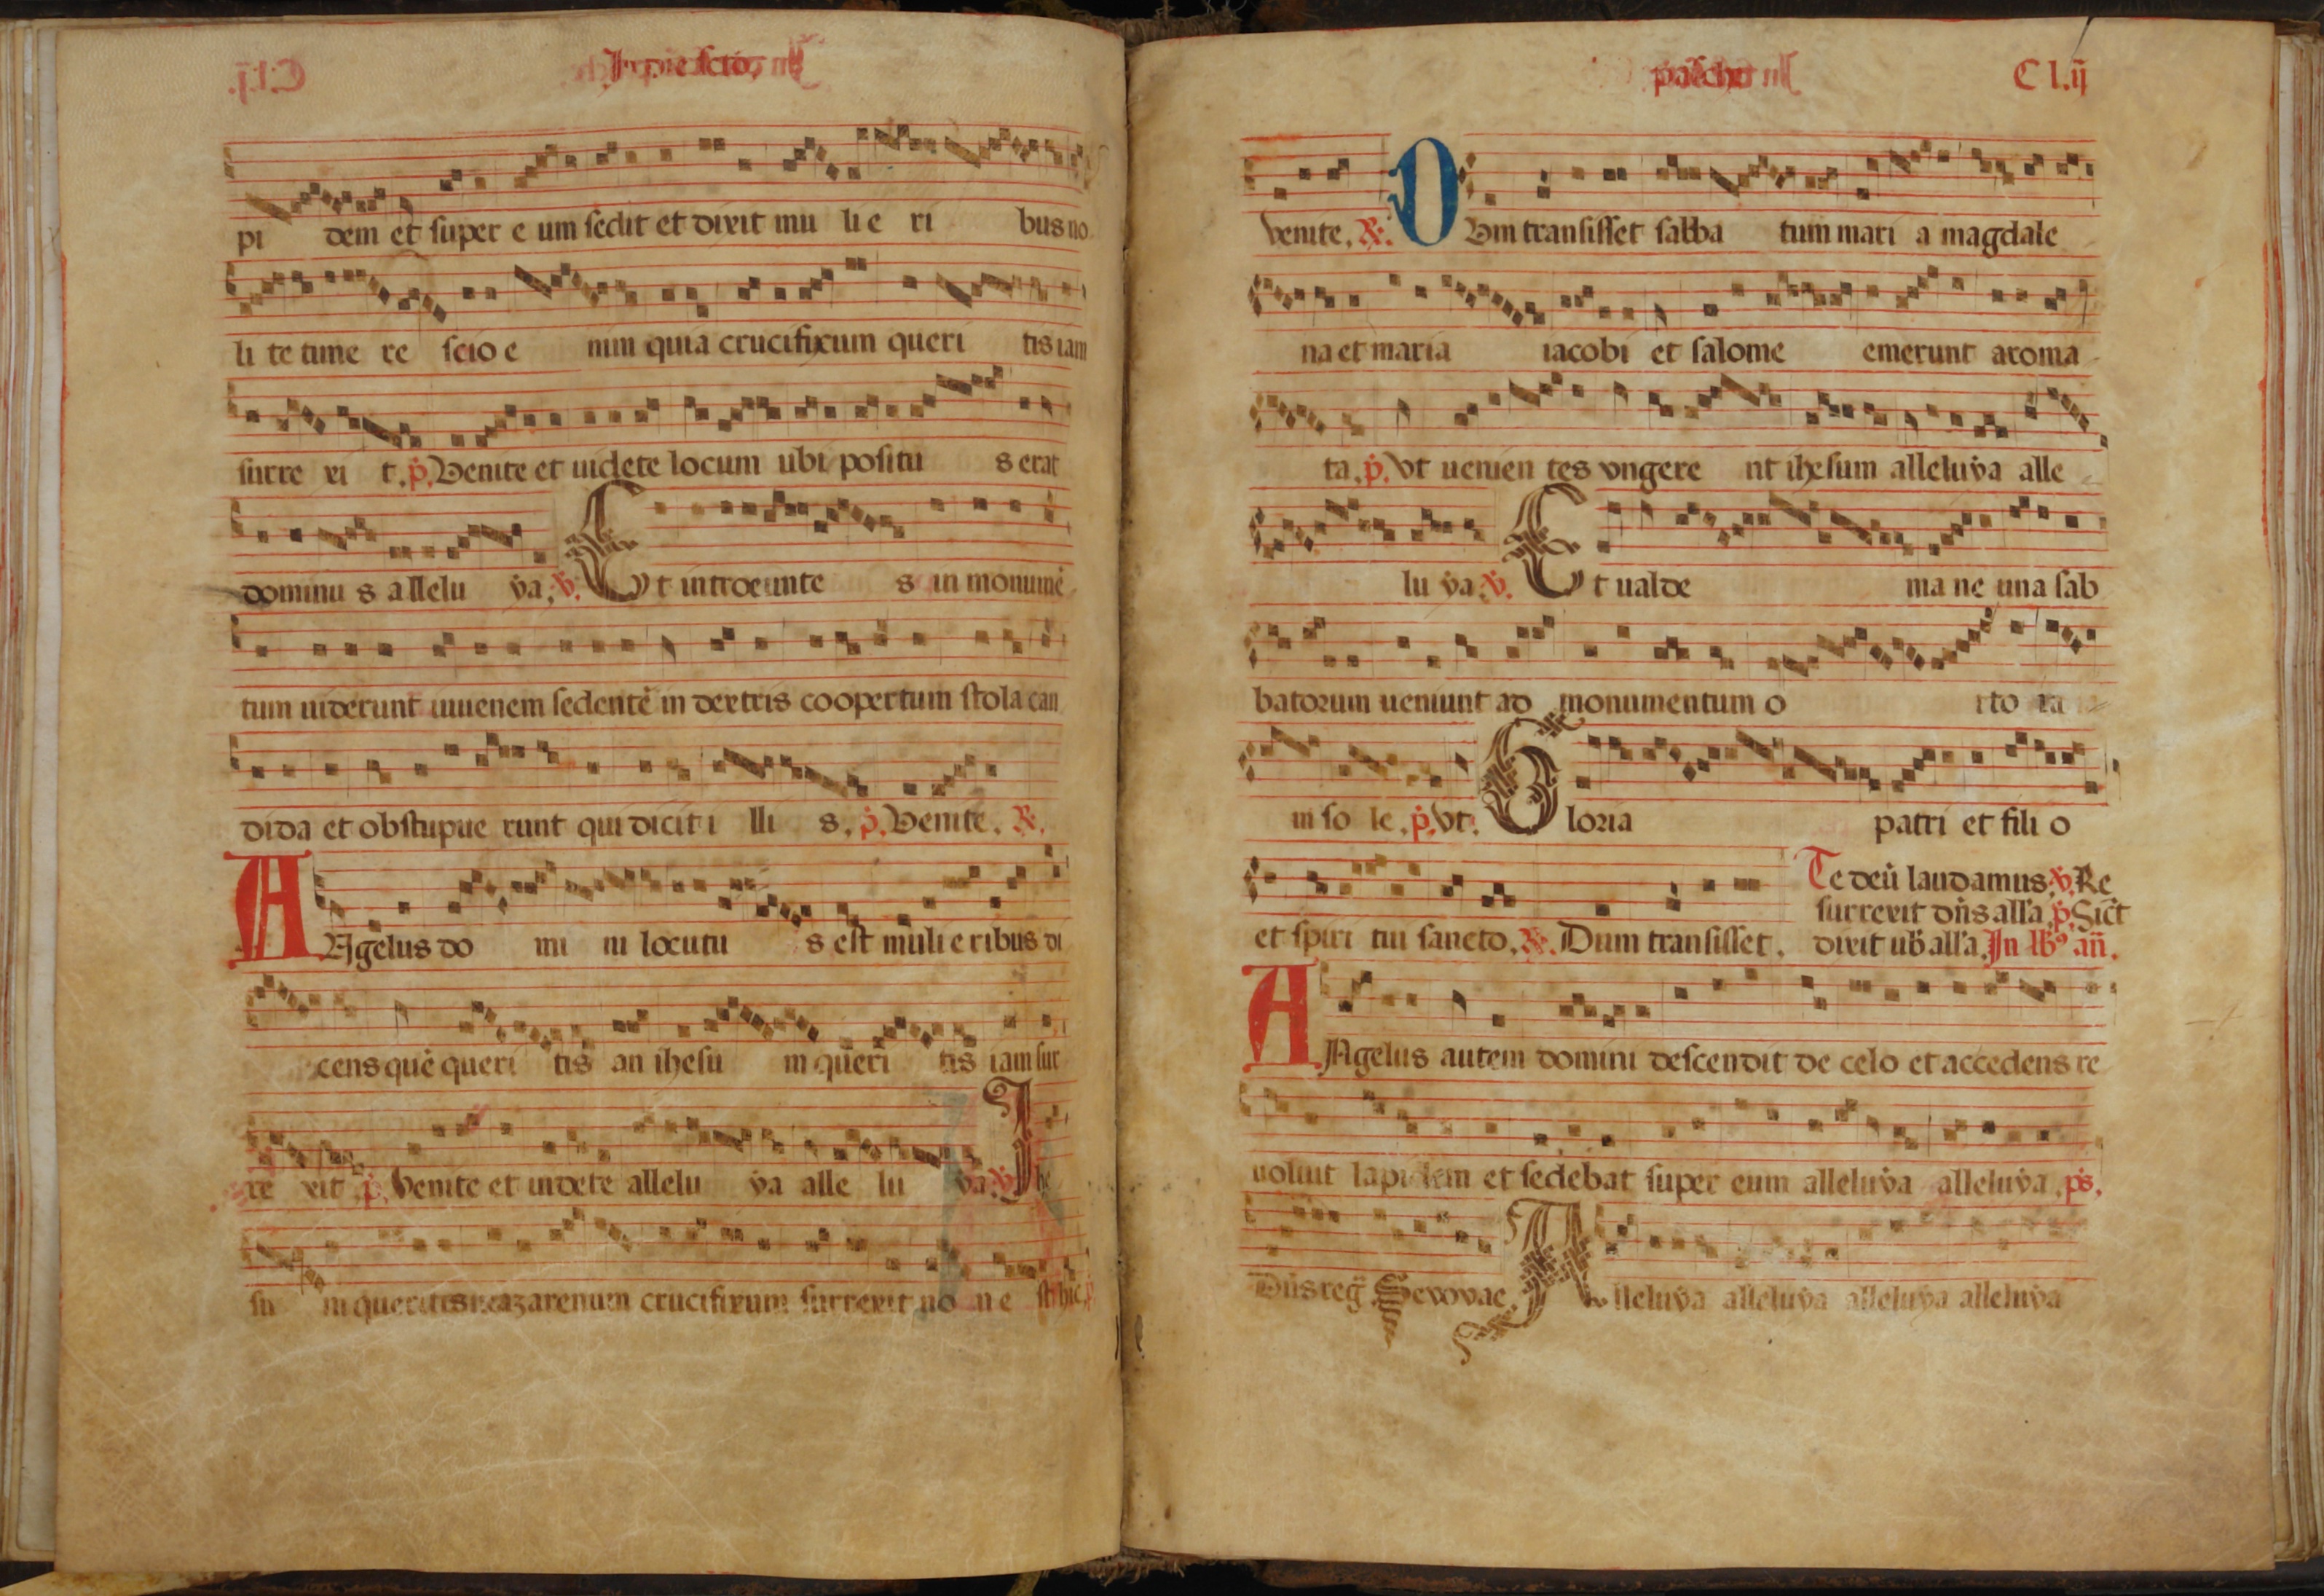 In die scto
pi dem et super e um sedit et dixit mu li e ri bus no
li te time re scio e nim quia crucifixum queri tis iam
surre xi t. p̄. Venite et uidete locum ubi positu s erat
dominu s allelu ẏa. v̇. Et introeunte s in monumē
tum uiderunt iuuenem sedentē in dextris coopertum stola can
dida et obstupue runt qui dicit i lli s. p̄. Venite. R̄.
Agelus do mi ni locutu s est muli e ribus di
cens quē queri tis an ihesu m queri tis iam sur
re xit. p̄. Venite et uidete allelu ẏa alle lu ẏa. v̇. Ihe
su m queritis nazarenum crucifixum surrexit no n e st hic. p̄
pasche Cl.ij
venite. R̄. Dum transisset sabba tum mari a magdale
na et maria iacobi et salome emerunt aroma
ta. p̄. Vt uenien tes vngere nt ihesum alleluẏa alle
lu ẏa. v̇. Et ualde ma ne una sab
batorum ueniunt ad monumentum o rto ia
m so le. p̄. Vt. Gloria patri et fili o
Te deū laudamus. v̇. Re
surrexit dn̄s all'a. p̄. Sic̄t
et spiri tui sancto. R̄. Dum transisset. dixit ub̄ all'a. In lb̄9 an̄.
Agelus autem domini descendit de celo et accedens re
uoluit lapidem et sedebat super eum alleluẏa alleluẏa. p̄s.
Dn̄s reg̅. Seuouae. Alleluẏa alleluẏa alleluẏa alleluẏa